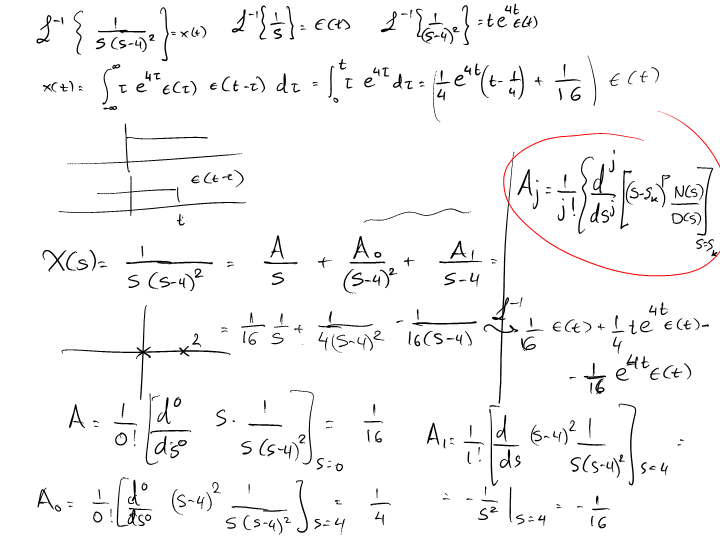 ℒ⁻¹{ 1/(s(s-4)²) } = x(t)   ℒ⁻¹{ 1/s } = ε(t)   ℒ⁻¹{ 1/(s-4)² } = t e^{4t} ε(t)
x(t) = ∫_{-∞}^{∞} τ e^{4τ} ε(τ) ε(t-τ) dτ = ∫_0^t τ e^{4τ} dτ = (1/4 e^{4t}(t - 1/4) + 1/16) ε(t)
ε(t-τ)
t
A_j = 1/j! { d^j/ds^j [ (s-s_k)^p N(s)/D(s) ]_{s=s_k}
X(s) = 1/(s(s-4)²) = A/s + A₀/(s-4)² + A₁/(s-4) =
= 1/16 1/s + 1/(4(s-4)²) - 1/(16(s-4)) ℒ⁻¹ → 1/16 ε(t) + 1/4 t e^{4t} ε(t) -
- 1/16 e^{4t} ε(t)
2
A = 1/0! [ d⁰/ds⁰ s · 1/(s(s-4)²) ]_{s=0} = 1/16
A₁ = 1/1! [ d/ds (s-4)² 1/(s(s-4)²) ]_{s=4} =
A₀ = 1/0! [ d⁰/ds⁰ (s-4)² 1/(s(s-4)²) ]_{s=4} = 1/4
= - 1/s² |_{s=4} = - 1/16